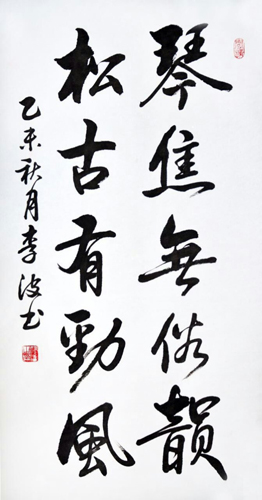 琴焦無俗韻
松古有勁風
乙未秋月李波书